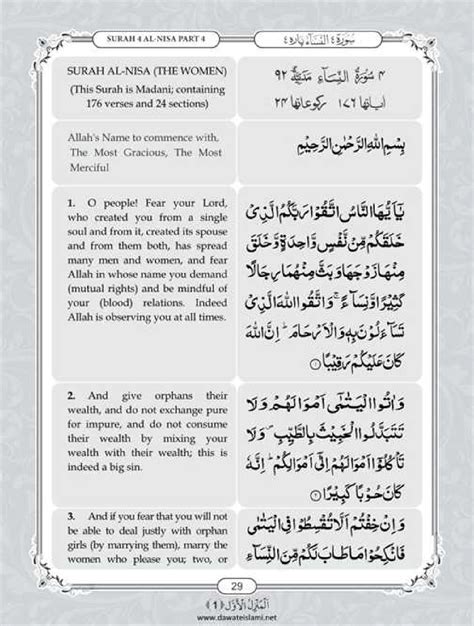 SURAH 4 AL-NISA PART 4
سورة ٤ النساء پارہ ٤
SURAH AL-NISA (THE WOMEN)
(This Surah is Madani; containing
176 verses and 24 sections)
٤ سُوْرَةُ النِّسَآءِ مَدَنِيَّةٌ ٩٢
اٰیاتها ١٧٦ رکوعاتها ٢٤
Allah's Name to commence with,
The Most Gracious, The Most
Merciful
بِسْمِ اللّٰهِ الرَّحْمٰنِ الرَّحِیْمِ
1. O people! Fear your Lord,
who created you from a single
soul and from it, created its spouse
and from them both, has spread
many men and women, and fear
Allah in whose name you demand
(mutual rights) and be mindful of
your (blood) relations. Indeed
Allah is observing you at all times.
یٰۤاَیُّهَا النَّاسُ اتَّقُوْا رَبَّكُمُ الَّذِیْ
خَلَقَكُمْ مِّنْ نَّفْسٍ وَّاحِدَةٍ وَّخَلَقَ
مِنْهَا زَوْجَهَا وَبَثَّ مِنْهُمَا رِجَالًا
كَثِیْرًا وَّنِسَآءً ۚ وَاتَّقُوا اللّٰهَ الَّذِیْ
تَسَآءَلُوْنَ بِهٖ وَالْاَرْحَامَ ؕ اِنَّ اللّٰهَ
كَانَ عَلَیْكُمْ رَقِیْبًا ۝۱
2. And give orphans their
wealth, and do not exchange pure
for impure, and do not consume
their wealth by mixing your
wealth with their wealth; this is
indeed a big sin.
وَاٰتُوا الْیَتٰمٰۤی اَمْوَالَهُمْ وَلَا
تَتَبَدَّلُوا الْخَبِیْثَ بِالطَّیِّبِ ۪ وَلَا
تَاْكُلُوْۤا اَمْوَالَهُمْ اِلٰۤی اَمْوَالِكُمْ ؕ اِنَّهٗ
كَانَ حُوْبًا كَبِیْرًا ۝۲
3. And if you fear that you will not
be able to deal justly with orphan
girls (by marrying them), marry the
women who please you; two, or
وَاِنْ خِفْتُمْ اَلَّا تُقْسِطُوْا فِی الْیَتٰمٰی
فَانْكِحُوْا مَا طَابَ لَكُمْ مِّنَ النِّسَآءِ
29
اَلْمَنْزِلُ الْاَوَّل ﴿1﴾
www.dawateislami.net